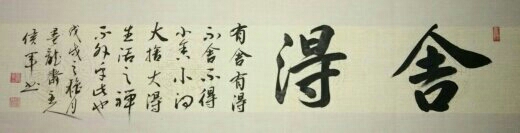 舍得
有舍有得
不舍不得
小舍小得
大捨大得
生活之禅
不外乎此也
戊戌之秋月
侯军书